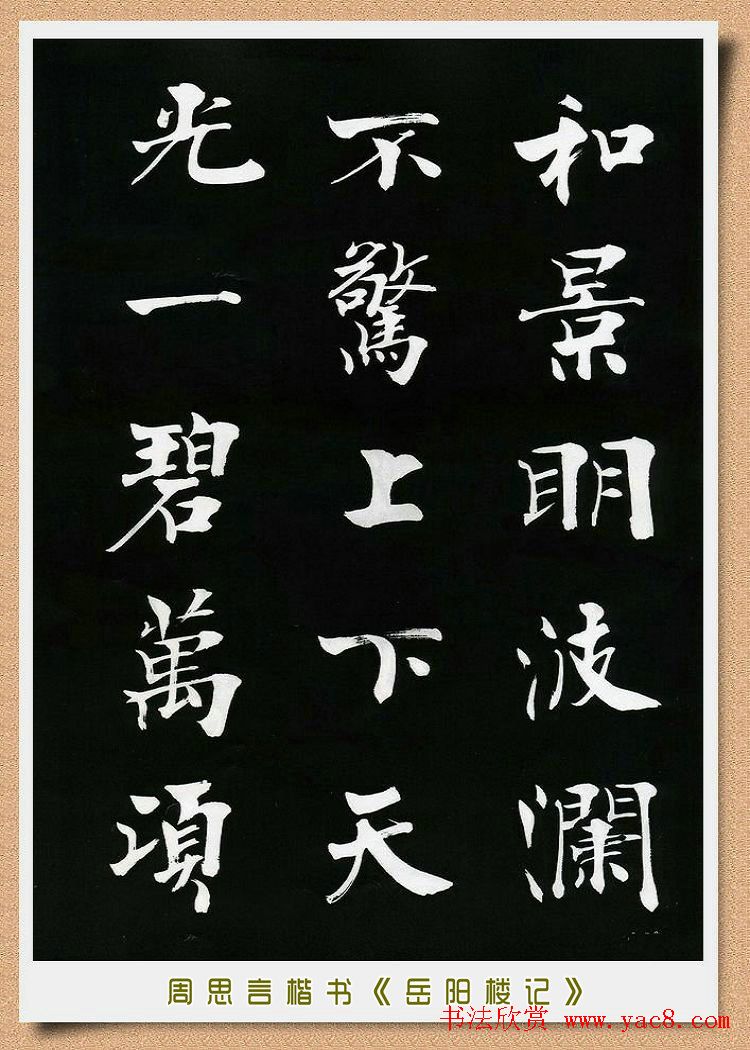 和景明波瀾
不驚上下天
光一碧萬頃
周思言楷书《岳阳楼记》
书法欣赏 www.yac8.com